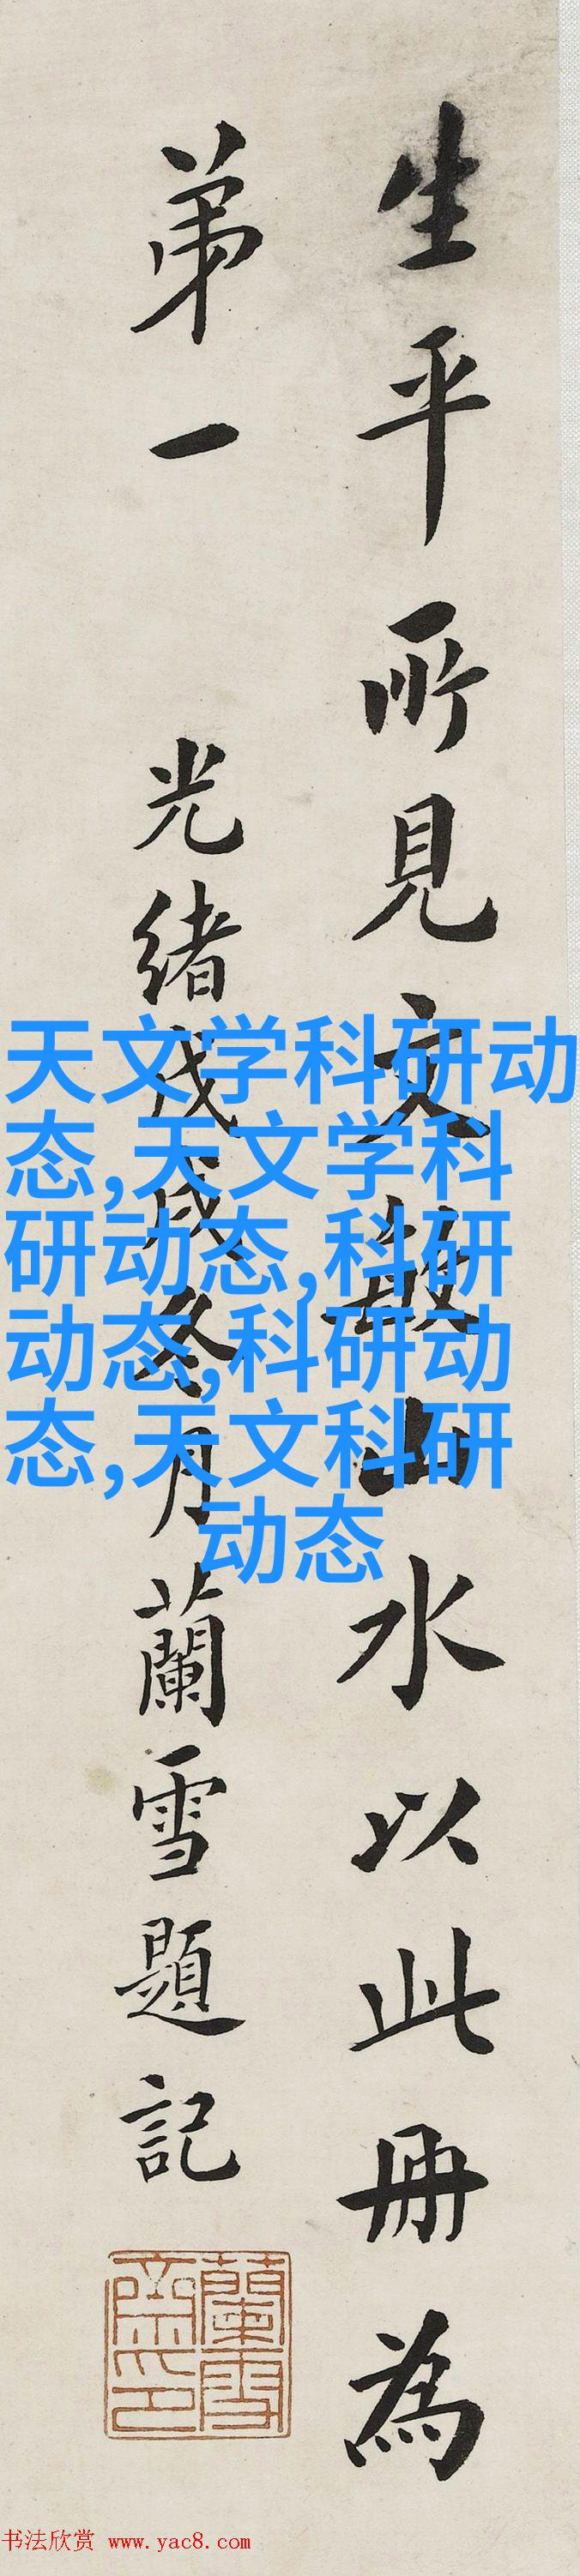 生平所見文敏山水以此冊為
弟一 光緒戊戌冬月蘭雪題記
蘭雪
齋印
天文学科研动
态,天文学科
研动态,科研
动态,科研动
态,天文科研
动态
书法欣赏 www.yac8.com